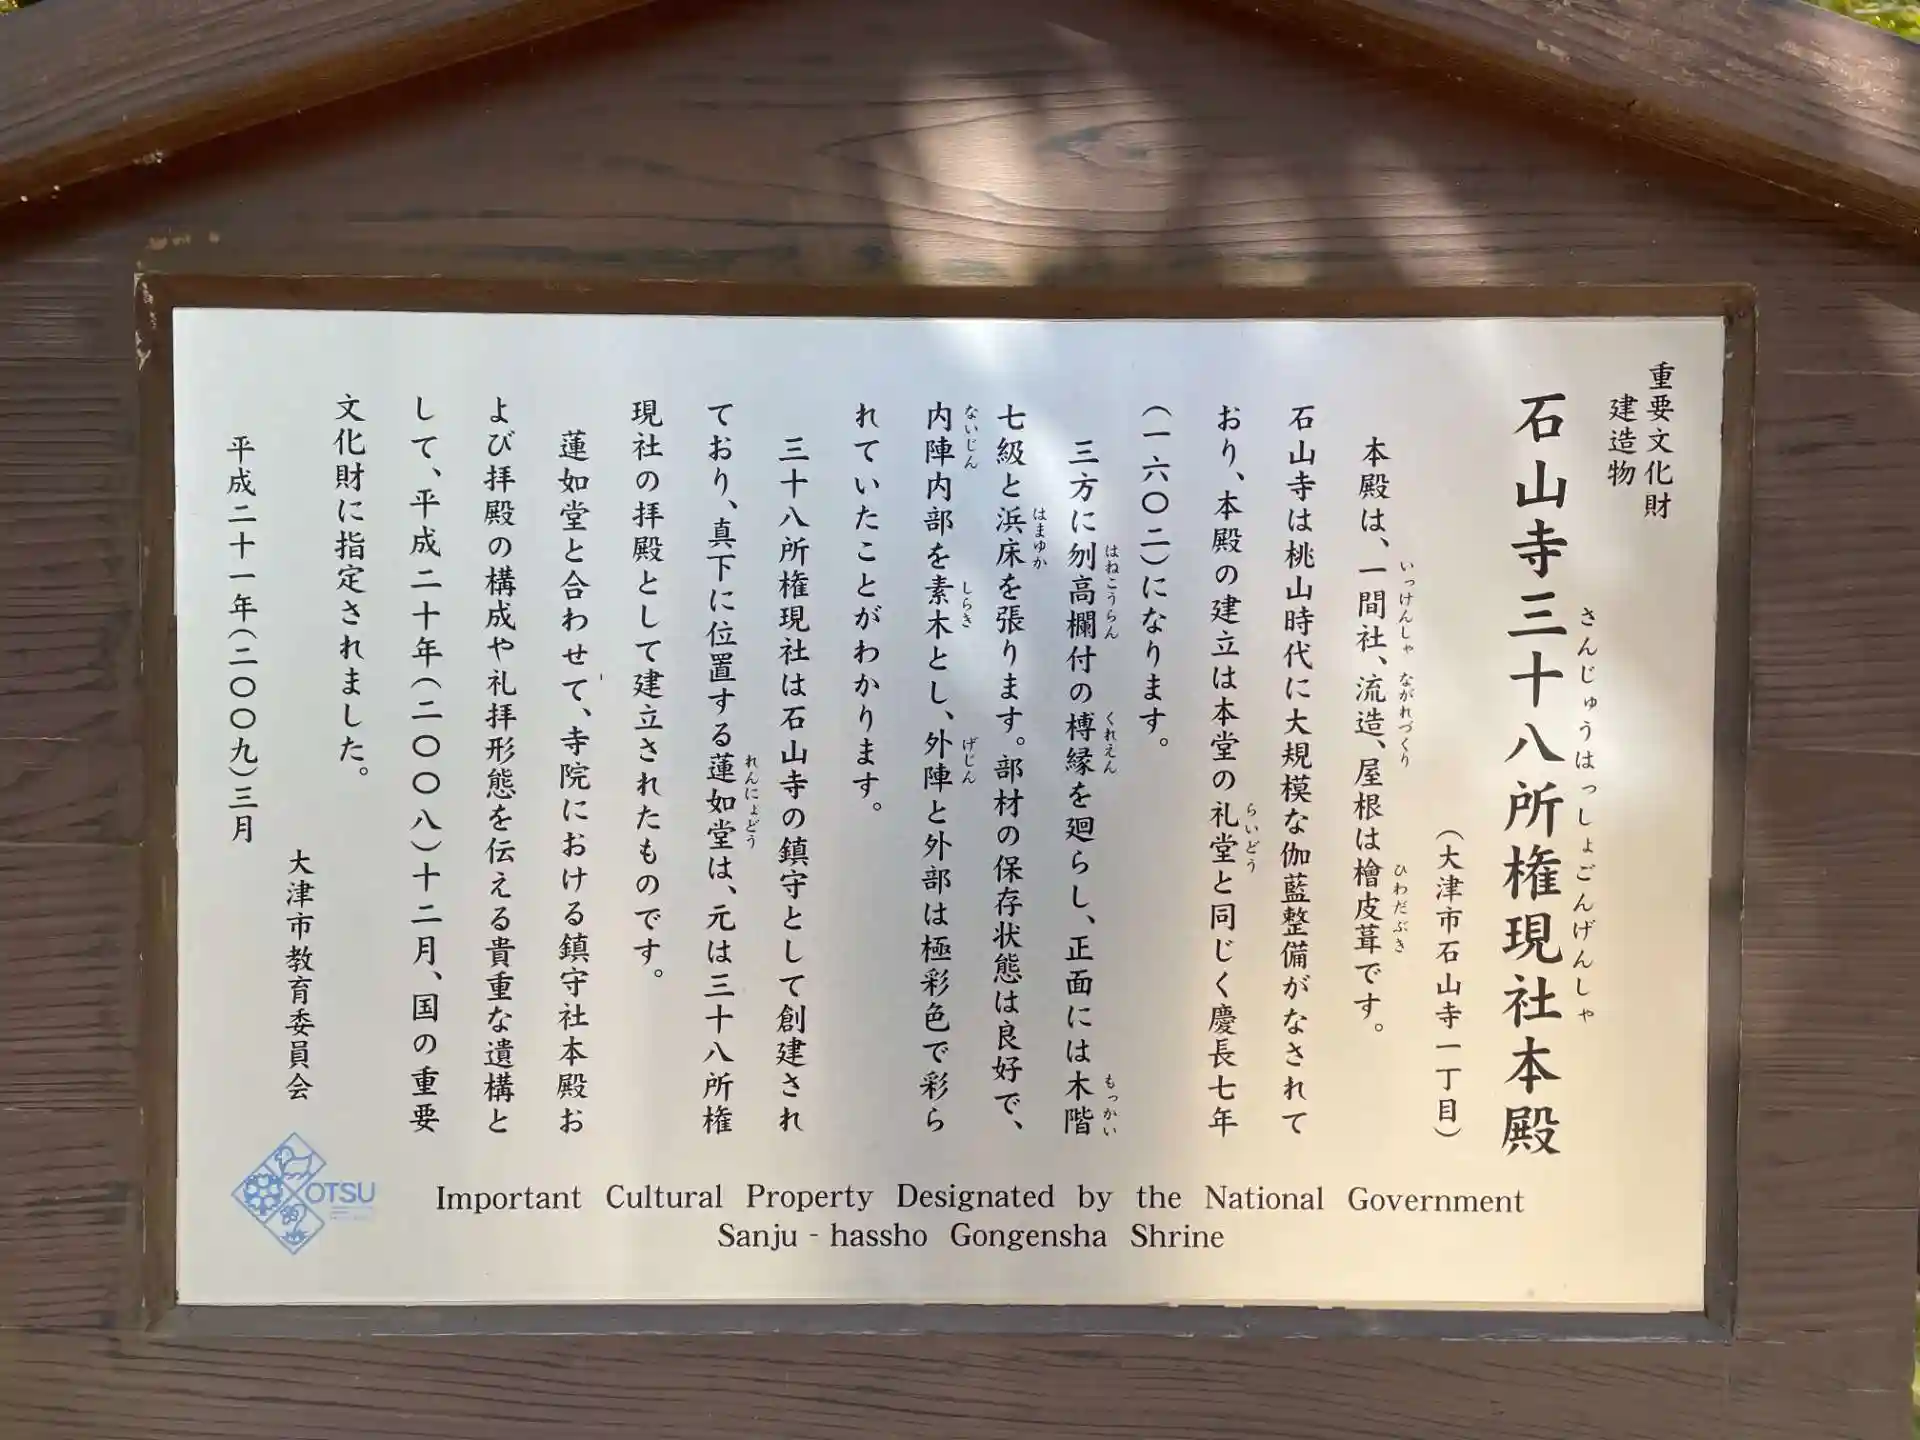 重要文化財
建造物
石山寺三十八所権現社本殿
さんじゅうはっしょごんげんしゃ
(大津市石山寺一丁目)
本殿は、一間社、流造、屋根は檜皮葺です。
いっけんしゃ ながれづくり ひわだぶき
石山寺は桃山時代に大規模な伽藍整備がなされて
おり、本殿の建立は本堂の礼堂と同じく慶長七年
らいどう
(一六〇二)になります。
三方に刎高欄付の榑縁を廻らし、正面には木階
はねこうらん くれえん もっかい
七級と浜床を張ります。部材の保存状態は良好で、
はまゆか
内陣内部を素木とし、外陣と外部は極彩色で彩ら
ないじん しらき げじん
れていたことがわかります。
三十八所権現社は石山寺の鎮守として創建され
ており、真下に位置する蓮如堂は、元は三十八所権
れんにょどう
現社の拝殿として建立されたものです。
蓮如堂と合わせて、寺院における鎮守社本殿お
よび拝殿の構成や礼拝形態を伝える貴重な遺構と
して、平成二十年(二〇〇八)十二月、国の重要
文化財に指定されました。
大津市教育委員会
平成二十一年(二〇〇九)三月
OTSU
Important Cultural Property Designated by the National Government
Sanju - hassho Gongensha Shrine